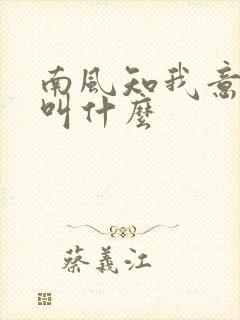 南風知我意
叫什麼
蔡義江